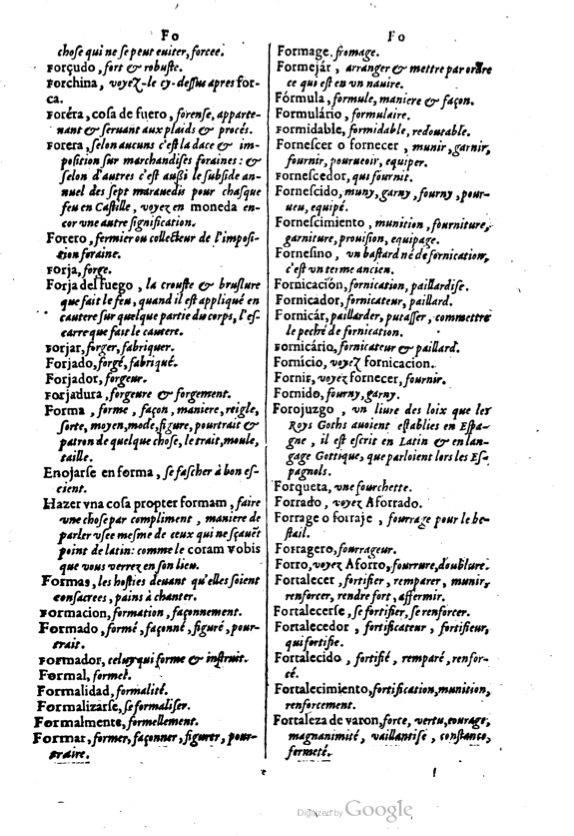 Fo
chose qui ne se peut euiter, forcee.
Forçudo, fort & robuste.
Forchina, voyez-le cy-dessus apres for-
ca.
Foréra, cosa de fuero, forense, apparte-
nant & seruant aux plaids & procés.
Forera, selon aucuns c'est la dace & im-
position sur marchandises foraines: &
selon d'autres c'est aussi le subside an-
nuel des sept marauedis pour chasque
feu en Castille, voyez en moneda en-
cor vne autre signification.
Forero, fermier ou collecteur de l'imposi-
tion foraine.
Forja, forge.
Forja del fuego, la crouste & bruslure
que fait le feu, quand il est appliqué en
cautere sur quelque partie du corps, l'es-
carre que fait le cautere.
Forjar, forger, fabriquer.
Forjado, forgé, fabriqué.
Forjador, forgeur.
Forjadura, forgeure & forgement.
Forma, forme, façon, maniere, reigle,
sorte, moyen, mode, figure, pourtrait &
patron de quelque chose, le trait, moule,
taille.
Enojarse en forma, se fascher à bon es-
cient.
Hazer vna cosa propter formam, faire
vne chose par compliment, maniere de
parler vsee mesme de ceux qui ne sçauēt
point de latin: comme le coram vobis
que vous verrez en son lieu.
Formas, les hosties deuant qu'elles soient
consacrees, pains à chanter.
Formacion, formation, façonnement.
Formado, formé, façonné, figuré, pour-
trait.
Formador, celuy qui forme & instruit.
Formal, formel.
Formalidad, formalité.
Formalizarse, se formaliser.
Formalmente, formellement.
Formar, former, façonner, figurer, pour-
traire.
Fo
Formage, fromage.
Formejár, arranger & mettre par ordre
ce qui est en vn nauire.
Fórmula, formule, maniere & façon.
Formulário, formulaire.
Formidable, formidable, redoutable.
Fornescer o fornecer, munir, garnir,
fournir, pourueoir, equiper.
Fornescedor, qui fournit.
Fornescido, muny, garny, fourny, pour-
ueu, equipé.
Fornescimiento, munition, fourniture,
garniture, prouision, equipage.
Fornesino, vn bastard né de fornication,
c'est vn terme ancien.
Fornicación, fornication, paillardise.
Fornicador, fornicateur, paillard.
Fornicár, paillarder, putasser, commettre
le peché de fornication.
Fornicário, fornicateur & paillard.
Fornicio, voyez fornicacion.
Fornir, voyez fornecer, fournir.
Fornido, fourny, garny.
Forojuzgo, vn liure des loix que les
Roys Goths auoient establies en Espa-
gne, il est escrit en Latin & en lan-
gage Gottique, que parloient lors les Es-
pagnols.
Forqueta, vne fourchette.
Forrado, voyez Aforrado.
Forrage o forraje, fourrage pour le be-
stail.
Forragero, fourrageur.
Forro, voyez Aforro, fourrure, doublure.
Fortalecer, fortifier, remparer, munir,
renforcer, rendre fort, affermir.
Fortalecerse, se fortifier, se renforcer.
Fortalecedor, fortificateur, fortifieur,
qui fortifie.
Fortalecido, fortifié, remparé, renfor-
cé.
Fortalecimiento, fortification, munition,
renforcement.
Fortaleza de varon, force, vertu, courage,
magnanimité, vaillantise, constance,
fermeté.
Digitized by Google